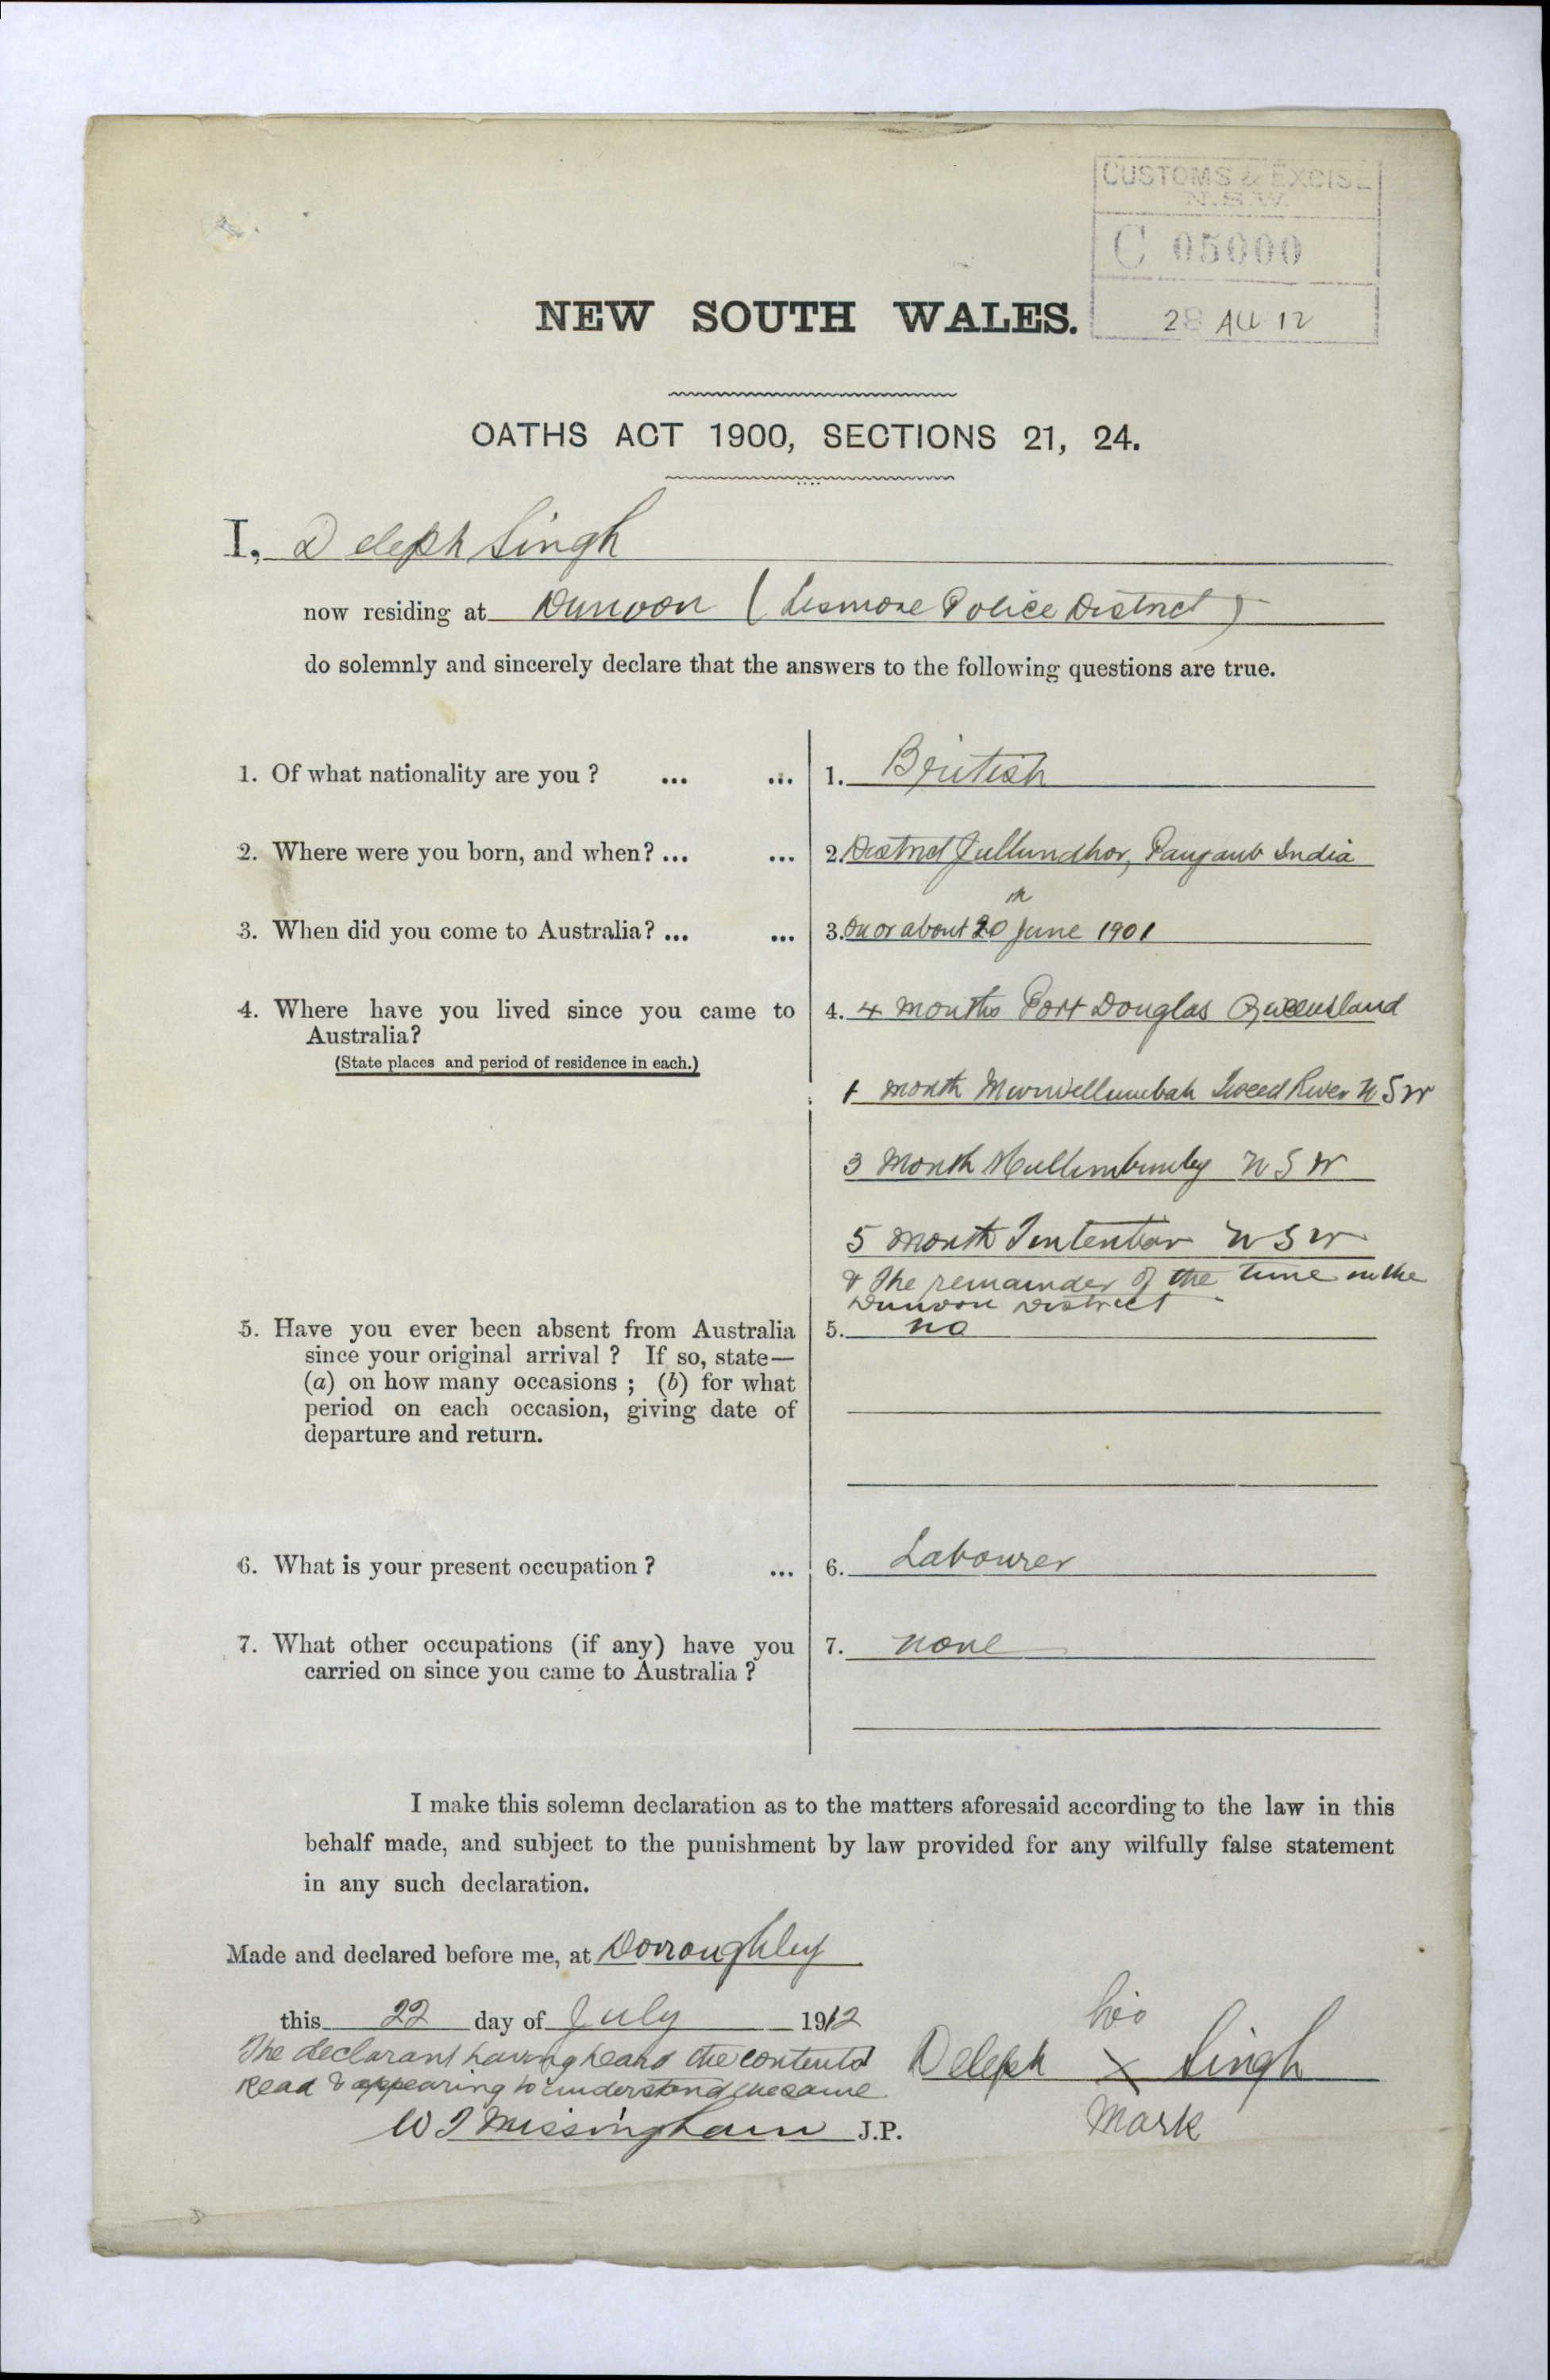 CUSTOMS & EXCISE
N.S.W.
C 05000
28 AU 12
NEW SOUTH WALES.
OATHS ACT 1900, SECTIONS 21, 24.
I, Deleph Singh
now residing at Dunoon (Lismore Police District)
do solemnly and sincerely declare that the answers to the following questions are true.
1. Of what nationality are you? ... ... 1. British
2. Where were you born, and when? ... ... 2. District Jullundhor, Panjaub India
3. When did you come to Australia? ... ... 3. On or about 20th June 1901
4. Where have you lived since you came to 4. 4 months Port Douglas Queensland
Australia?
(State places and period of residence in each.)
1 month Murwillumbah Tweed River N S W
3 Month Mullumbimby N S W
5 month Tintenbar N S W
& The remainder of the time in the
Dunoon District
5. Have you ever been absent from Australia 5. no
since your original arrival? If so, state—
(a) on how many occasions; (b) for what
period on each occasion, giving date of
departure and return.
6. What is your present occupation? ... 6. Labourer
7. What other occupations (if any) have you 7. none
carried on since you came to Australia?
I make this solemn declaration as to the matters aforesaid according to the law in this
behalf made, and subject to the punishment by law provided for any wilfully false statement
in any such declaration.
Made and declared before me, at Dorroughby
this 22 day of July 1912
his
The declarant having heard the contents
Deleph X Singh
Read & appearing to understand the same
Mark
W J Missingham J.P.